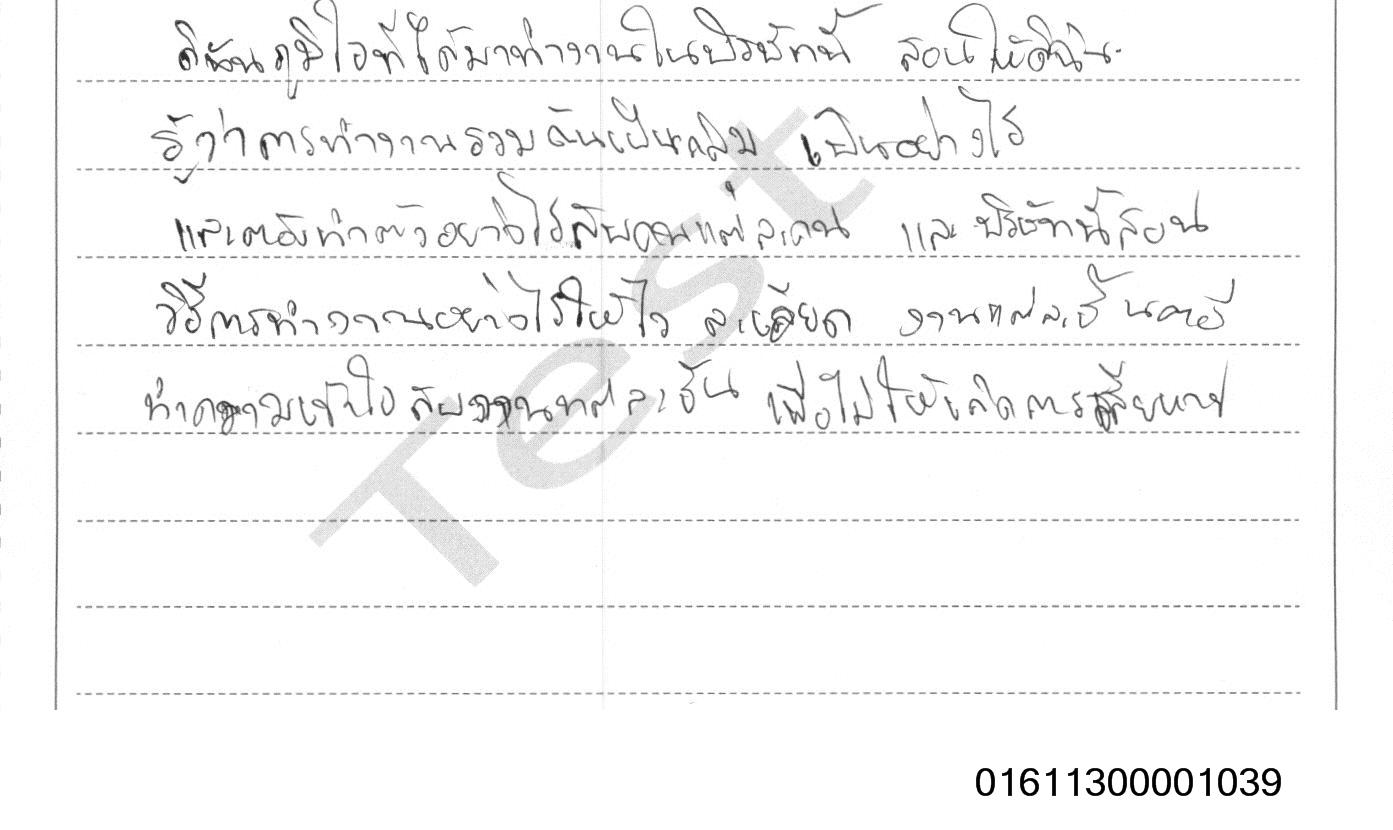 ดิฉันภูมิใจที่ได้มาทำงานในบริษัทนี้ สอนให้ดิฉัน
รู้ว่าการทำงานรวมกันเป็นกลุ่ม เป็นอย่างไร
และต้องทำตัวอย่างไรกับคนแต่ละคน และ บริษัทนี้สอน
วิธีการทำงานอย่างไรให้ไว ละเอียด งานแต่ละชิ้น
ทำความเข้าใจ กับงานแต่ละชิ้น เพื่อไม่ให้เกิดการเสียหาย
Test
01611300001039